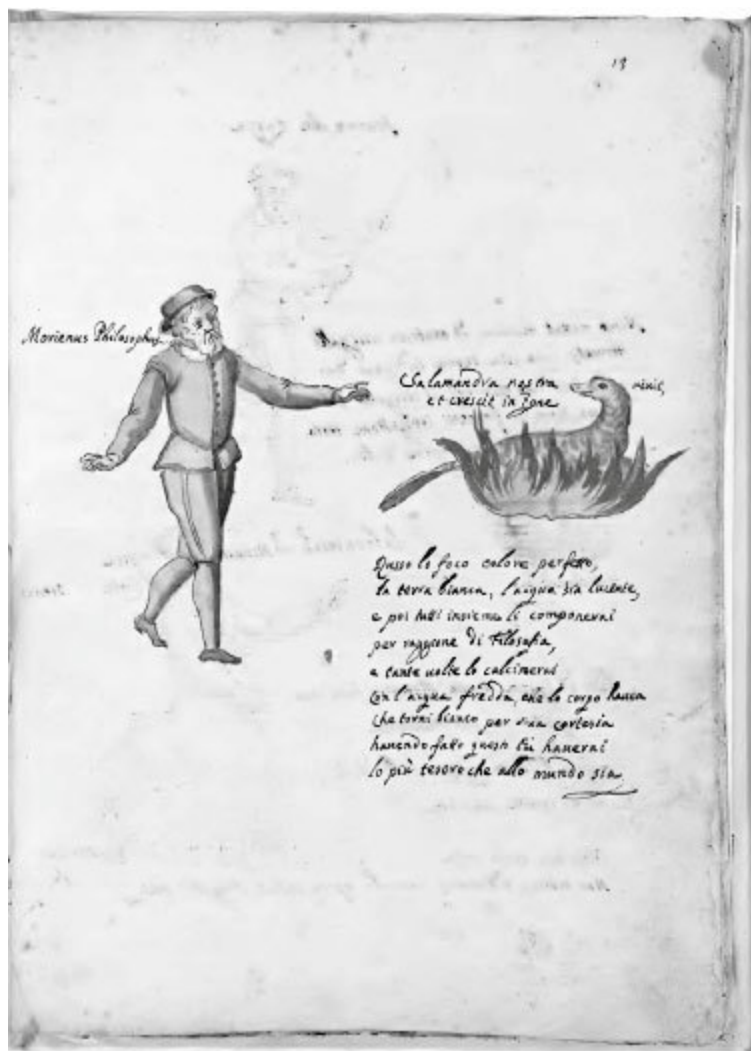 13
Morienus Philosophus
Salamandra nostra vivit,
et crescit in igne
Russo lo foco colore perfetto,
la terra bianca, l'aigua sia lucente,
e poi tutti insieme li componerai
per raggione di Filosofia,
e tante volte lo calcinerai
Con l'aigua fredda, che lo corpo
Che torni bianco per sua cortesia
havendo fatto questo tu haverai
lo più tesoro che allo mundo sia